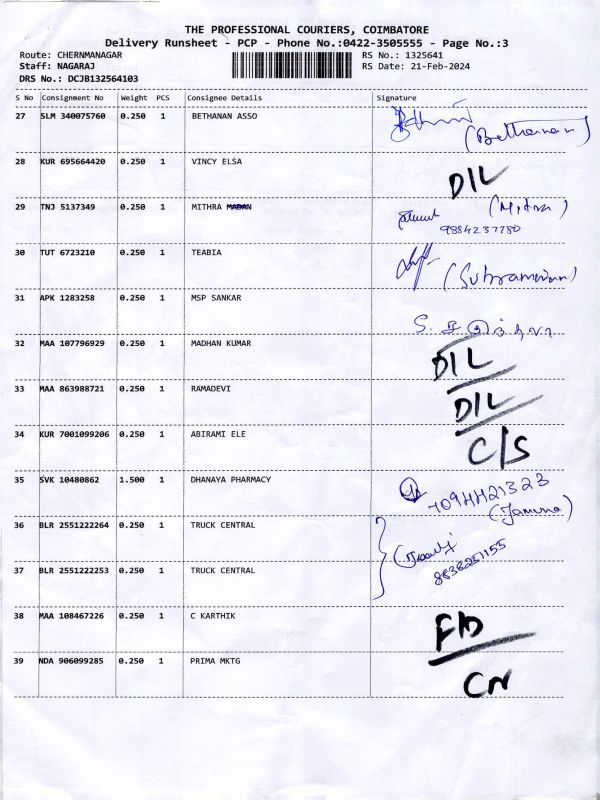 THE PROFESSIONAL COURIERS, COIMBATORE
Delivery Runsheet - PCP - Phone No.:0422-3505555 - Page No.:3
Route: CHERNMANAGAR RS No.: 1325641
Staff: NAGARAJ RS Date: 21-Feb-2024
DRS No.: DCJB132564103
S No Consignment No Weight PCS Consignee Details Signature
27 SLM 340075760 0.250 1 BETHANAN ASSO
(Bethanan)
28 KUR 695664420 0.250 1 VINCY ELSA
D/L
29 TNJ 5137349 0.250 1 MITHRA MADAN (Mitra)
9884237780
30 TUT 6723210 0.250 1 TEABIA
(Subramanian)
31 APK 1283258 0.250 1 MSP SANKAR
32 MAA 107796929 0.250 1 MADHAN KUMAR
D/L
33 MAA 863988721 0.250 1 RAMADEVI
D/L
34 KUR 7001099206 0.250 1 ABIRAMI ELE
C/S
35 SVK 10480862 1.500 1 DHANAYA PHARMACY
7094421323
(Jamuna)
36 BLR 2551222264 0.250 1 TRUCK CENTRAL
8838251155
37 BLR 2551222253 0.250 1 TRUCK CENTRAL
38 MAA 108467226 0.250 1 C KARTHIK
F/D
39 NDA 906099285 0.250 1 PRIMA MKTG
CN